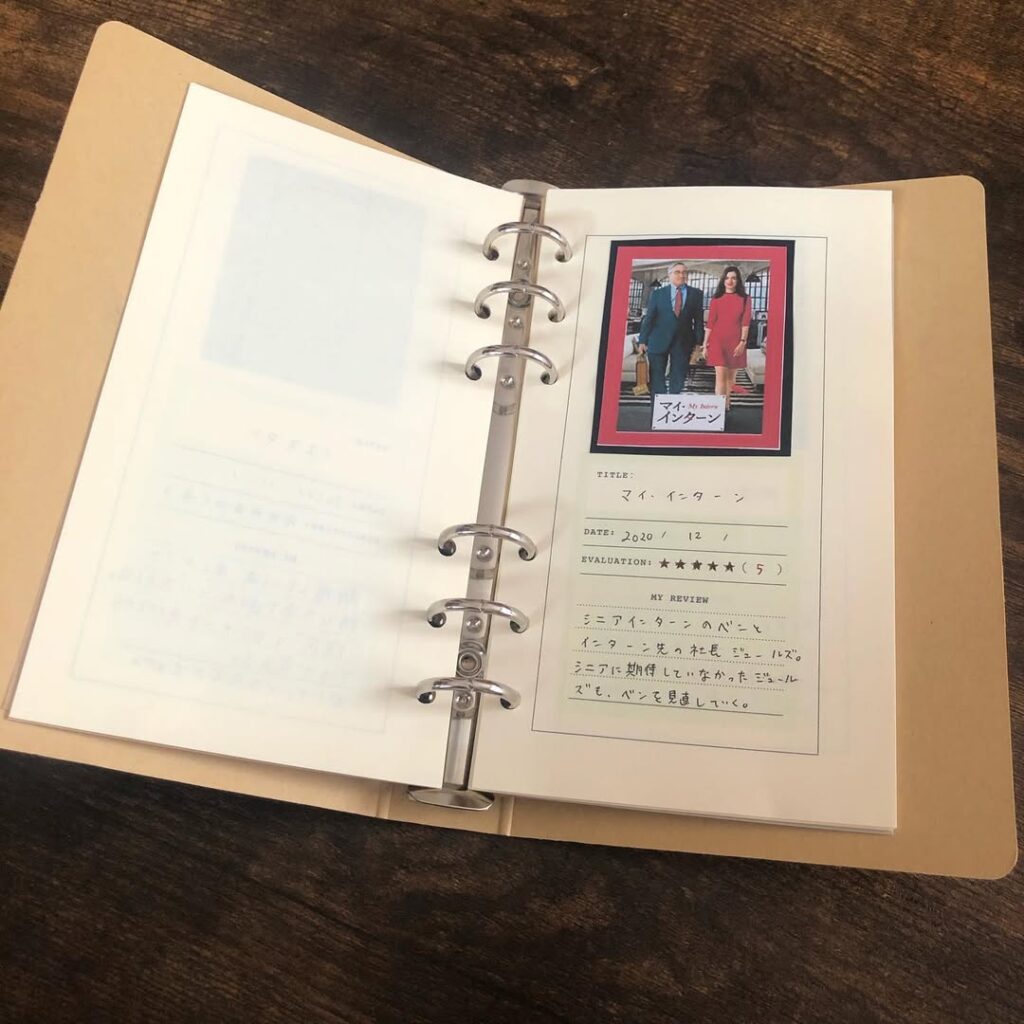 マイ・ My Intern
インターン
TITLE:
マイ・インターン
DATE: 2020 / 12 /
EVALUATION: ★★★★★ ( 5 )
MY REVIEW
シニアインターンのベンと
インターン先の社長ジュールズ。
シニアに期待していなかったジュール
ズも、ベンを見直していく。